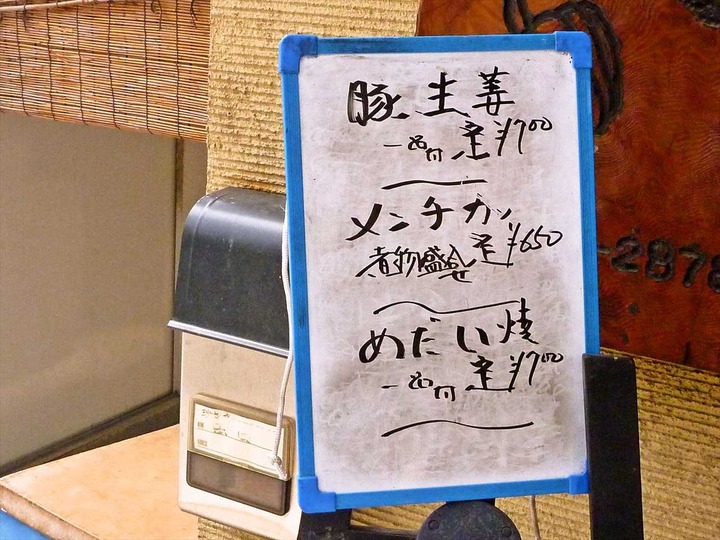 豚生姜
一品付 定¥700
メンチカツ
煮物盛合せ 定¥650
めだい焼
一品付 定¥700
-2878